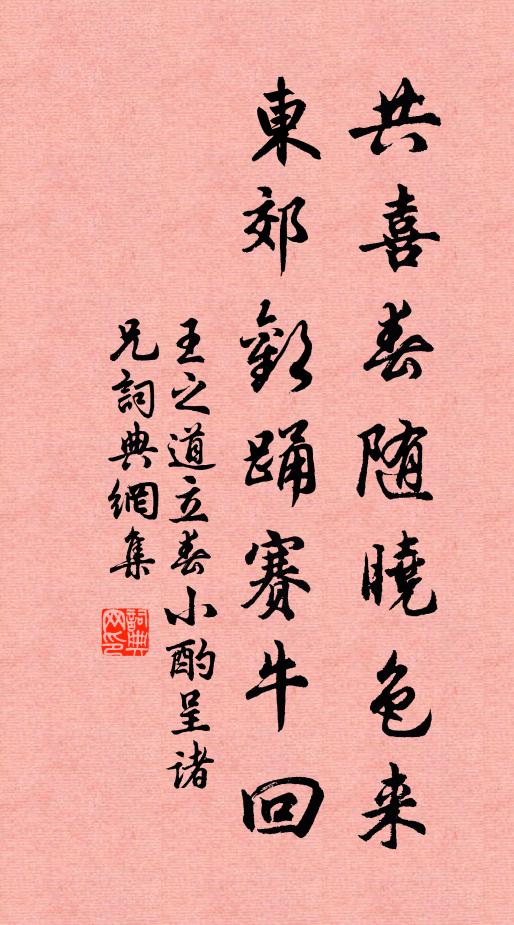 共喜春随曉色来
東郊歡踊賽牛回
王之道立春小酌呈诸
兄詞典網集
詞典网印